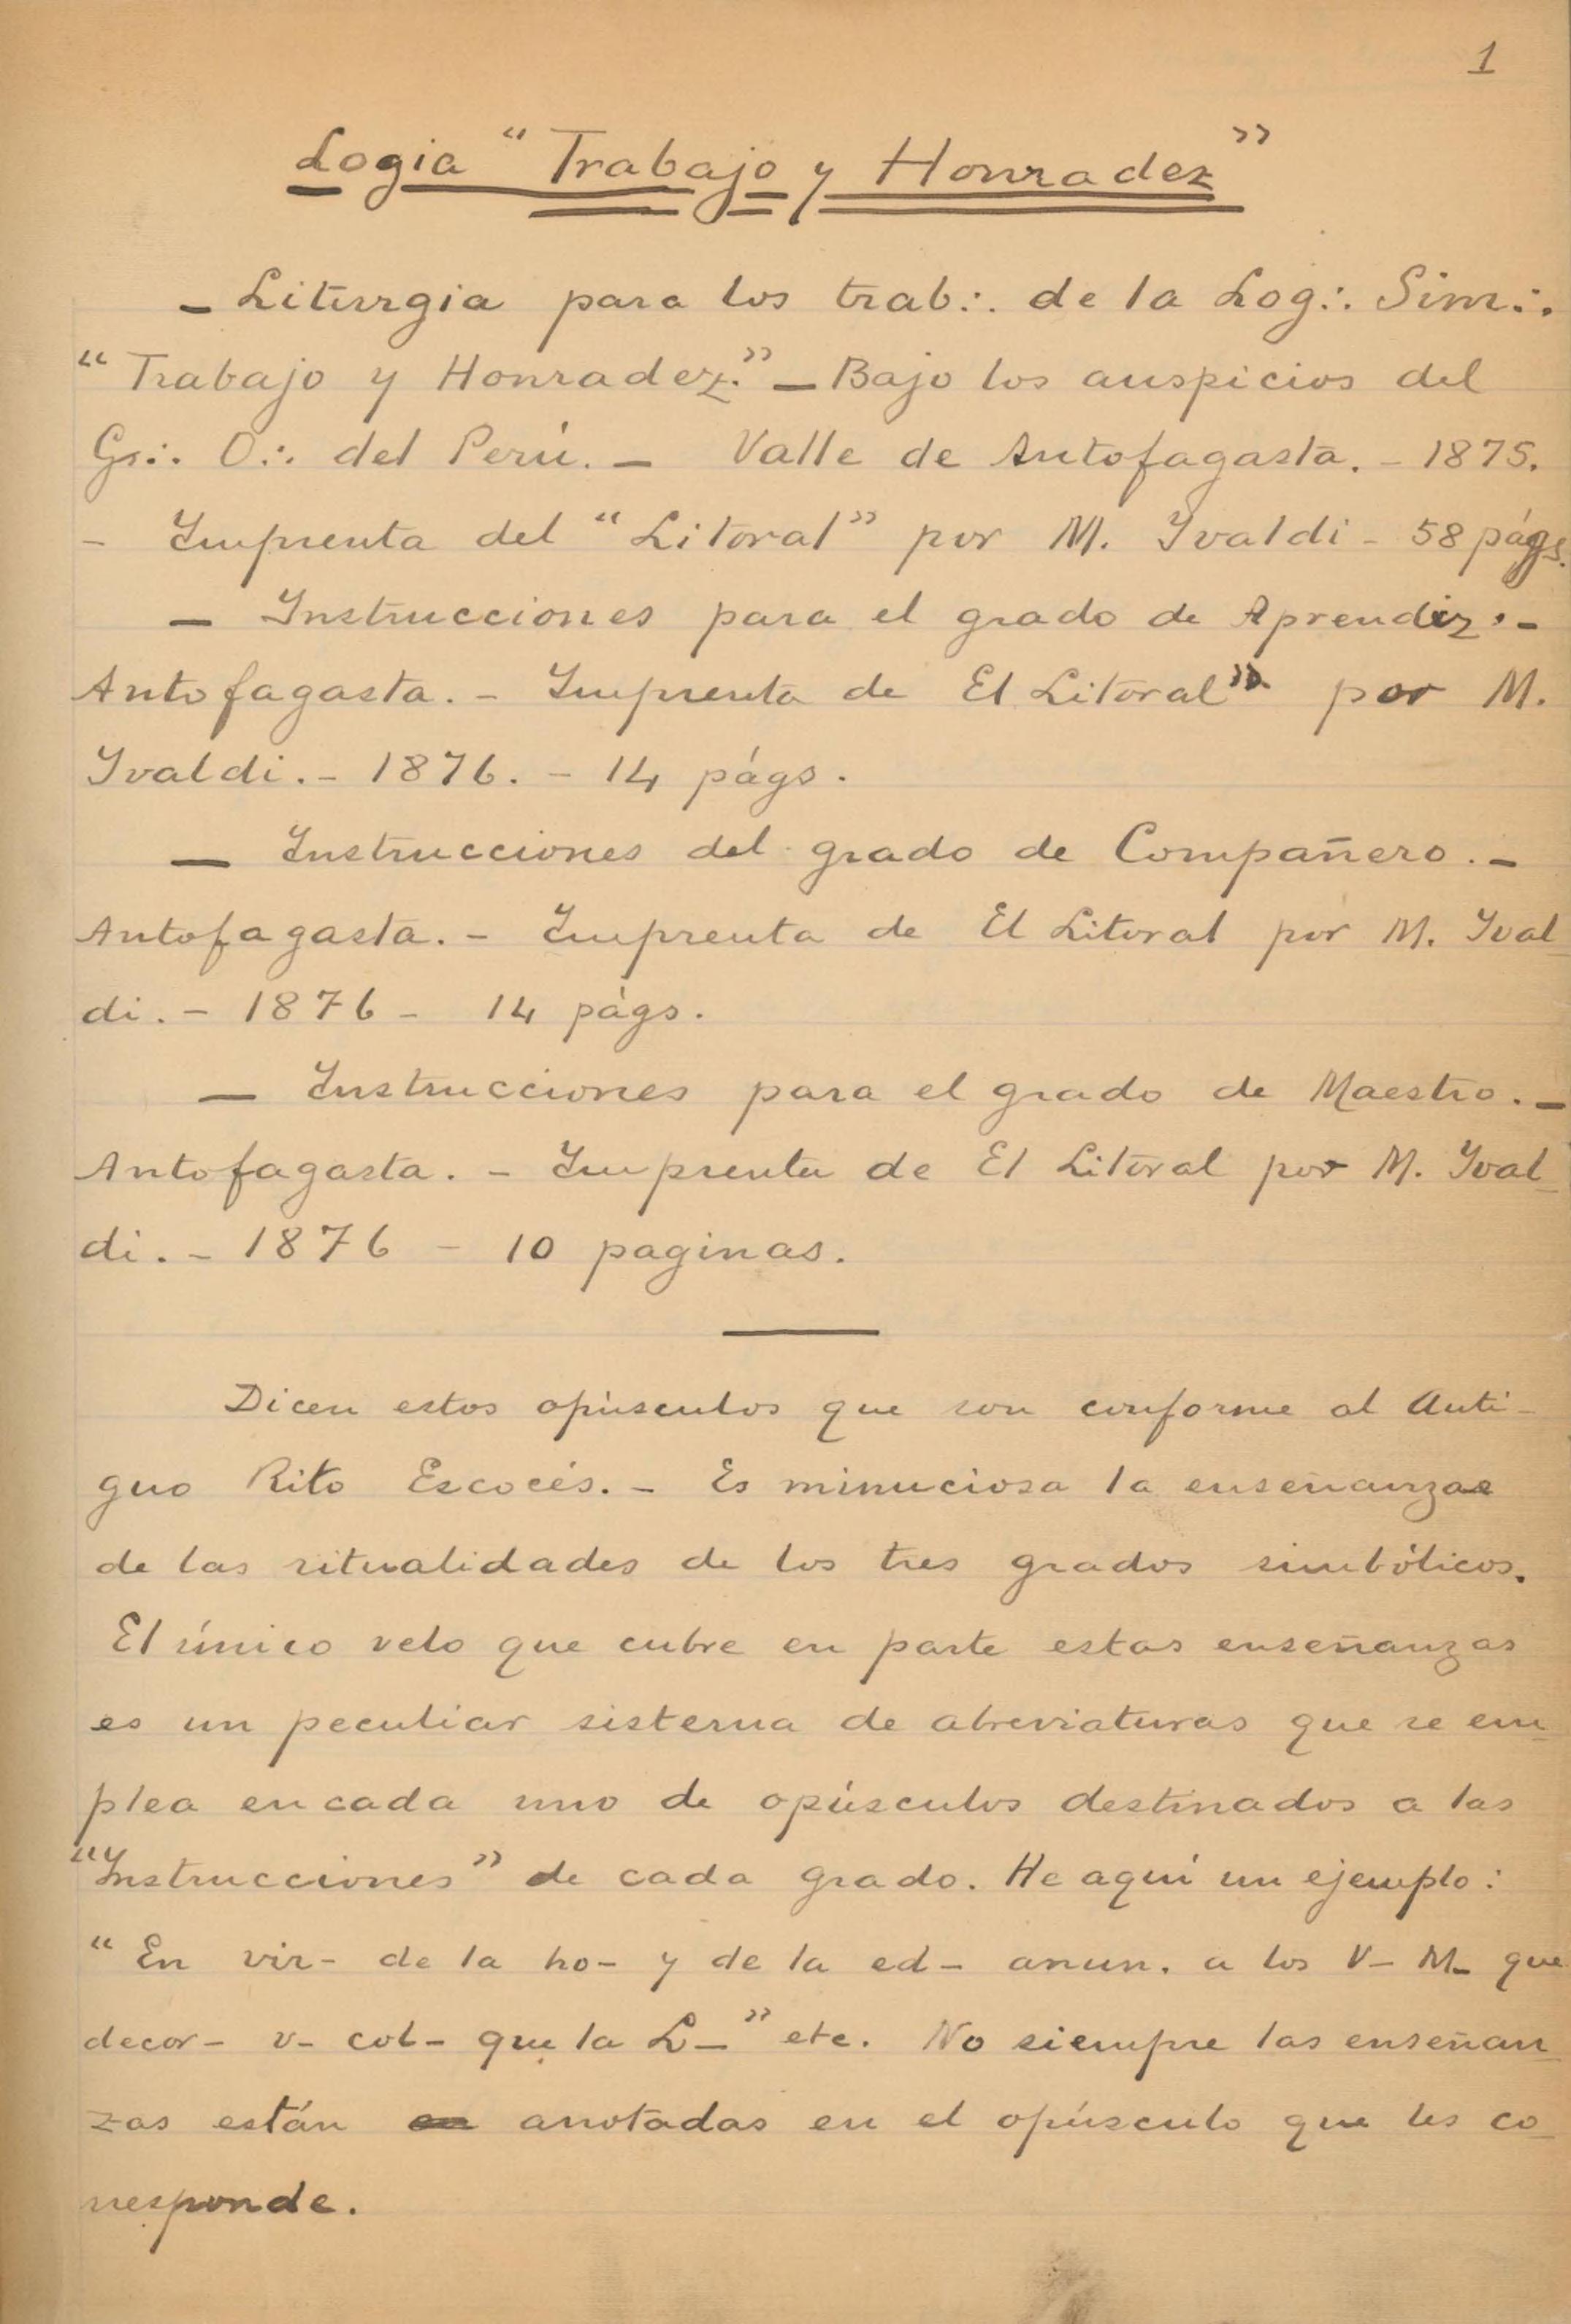 1
Logia "Trabajo y Honradez"
- Liturgia para los trab∴ de la Log∴ Sim∴
"Trabajo y Honradez." - Bajo los auspicios del
Gr∴ O∴ del Perú. - Valle de Antofagasta. - 1875.
- Imprenta del "Litoral" por M. Ivaldi - 58 págs.
- Instrucciones para el grado de Aprendiz. -
Antofagasta. - Imprenta de El Litoral" por M.
Ivaldi. - 1876. - 14 págs.
- Instrucciones del grado de Compañero. -
Antofagasta. - Imprenta de El Litoral por M. Ival-
di. - 1876 - 14 págs.
- Instrucciones para el grado de Maestro. -
Antofagasta. - Imprenta de El Litoral por M. Ival-
di. - 1876 - 10 paginas.
Dicen estos opúsculos que son conforme al Anti-
guo Rito Escocés. - Es minuciosa la enseñanza
de las ritualidades de los tres grados simbólicos.
El único velo que cubre en parte estas enseñanzas
es un peculiar sistema de abreviaturas que se em-
plea en cada uno de opúsculos destinados a las
"Instrucciones" de cada grado. He aquí un ejemplo:
"En vir- de la ho- y de la ed- anun. a los V- M- que
decor- v- col- que la L-" etc. No siempre las enseñan-
zas están anotadas en el opúsculo que les co-
rresponde.